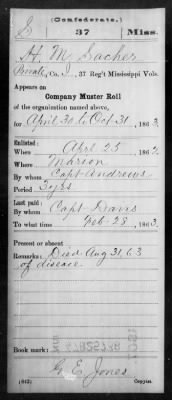 (Confederate.)
S 37 Miss.
H. M. Sacher
Private, Co. I, 37 Reg't Mississippi Vols.
Appears on
Company Muster Roll
of the organization named above,
for April 30 to Oct 31, 1863.
Enlisted:
When Aprl 25, 186
Where Marion
By whom Capt Andrews
Period 3 yrs
Last paid:
By whom Capt Davis
To what time Feb 28, 1863.
Present or absent
Remarks: Died Aug 31, 63
of disease
Book mark:
G. E. Jones
(642) Copyist.